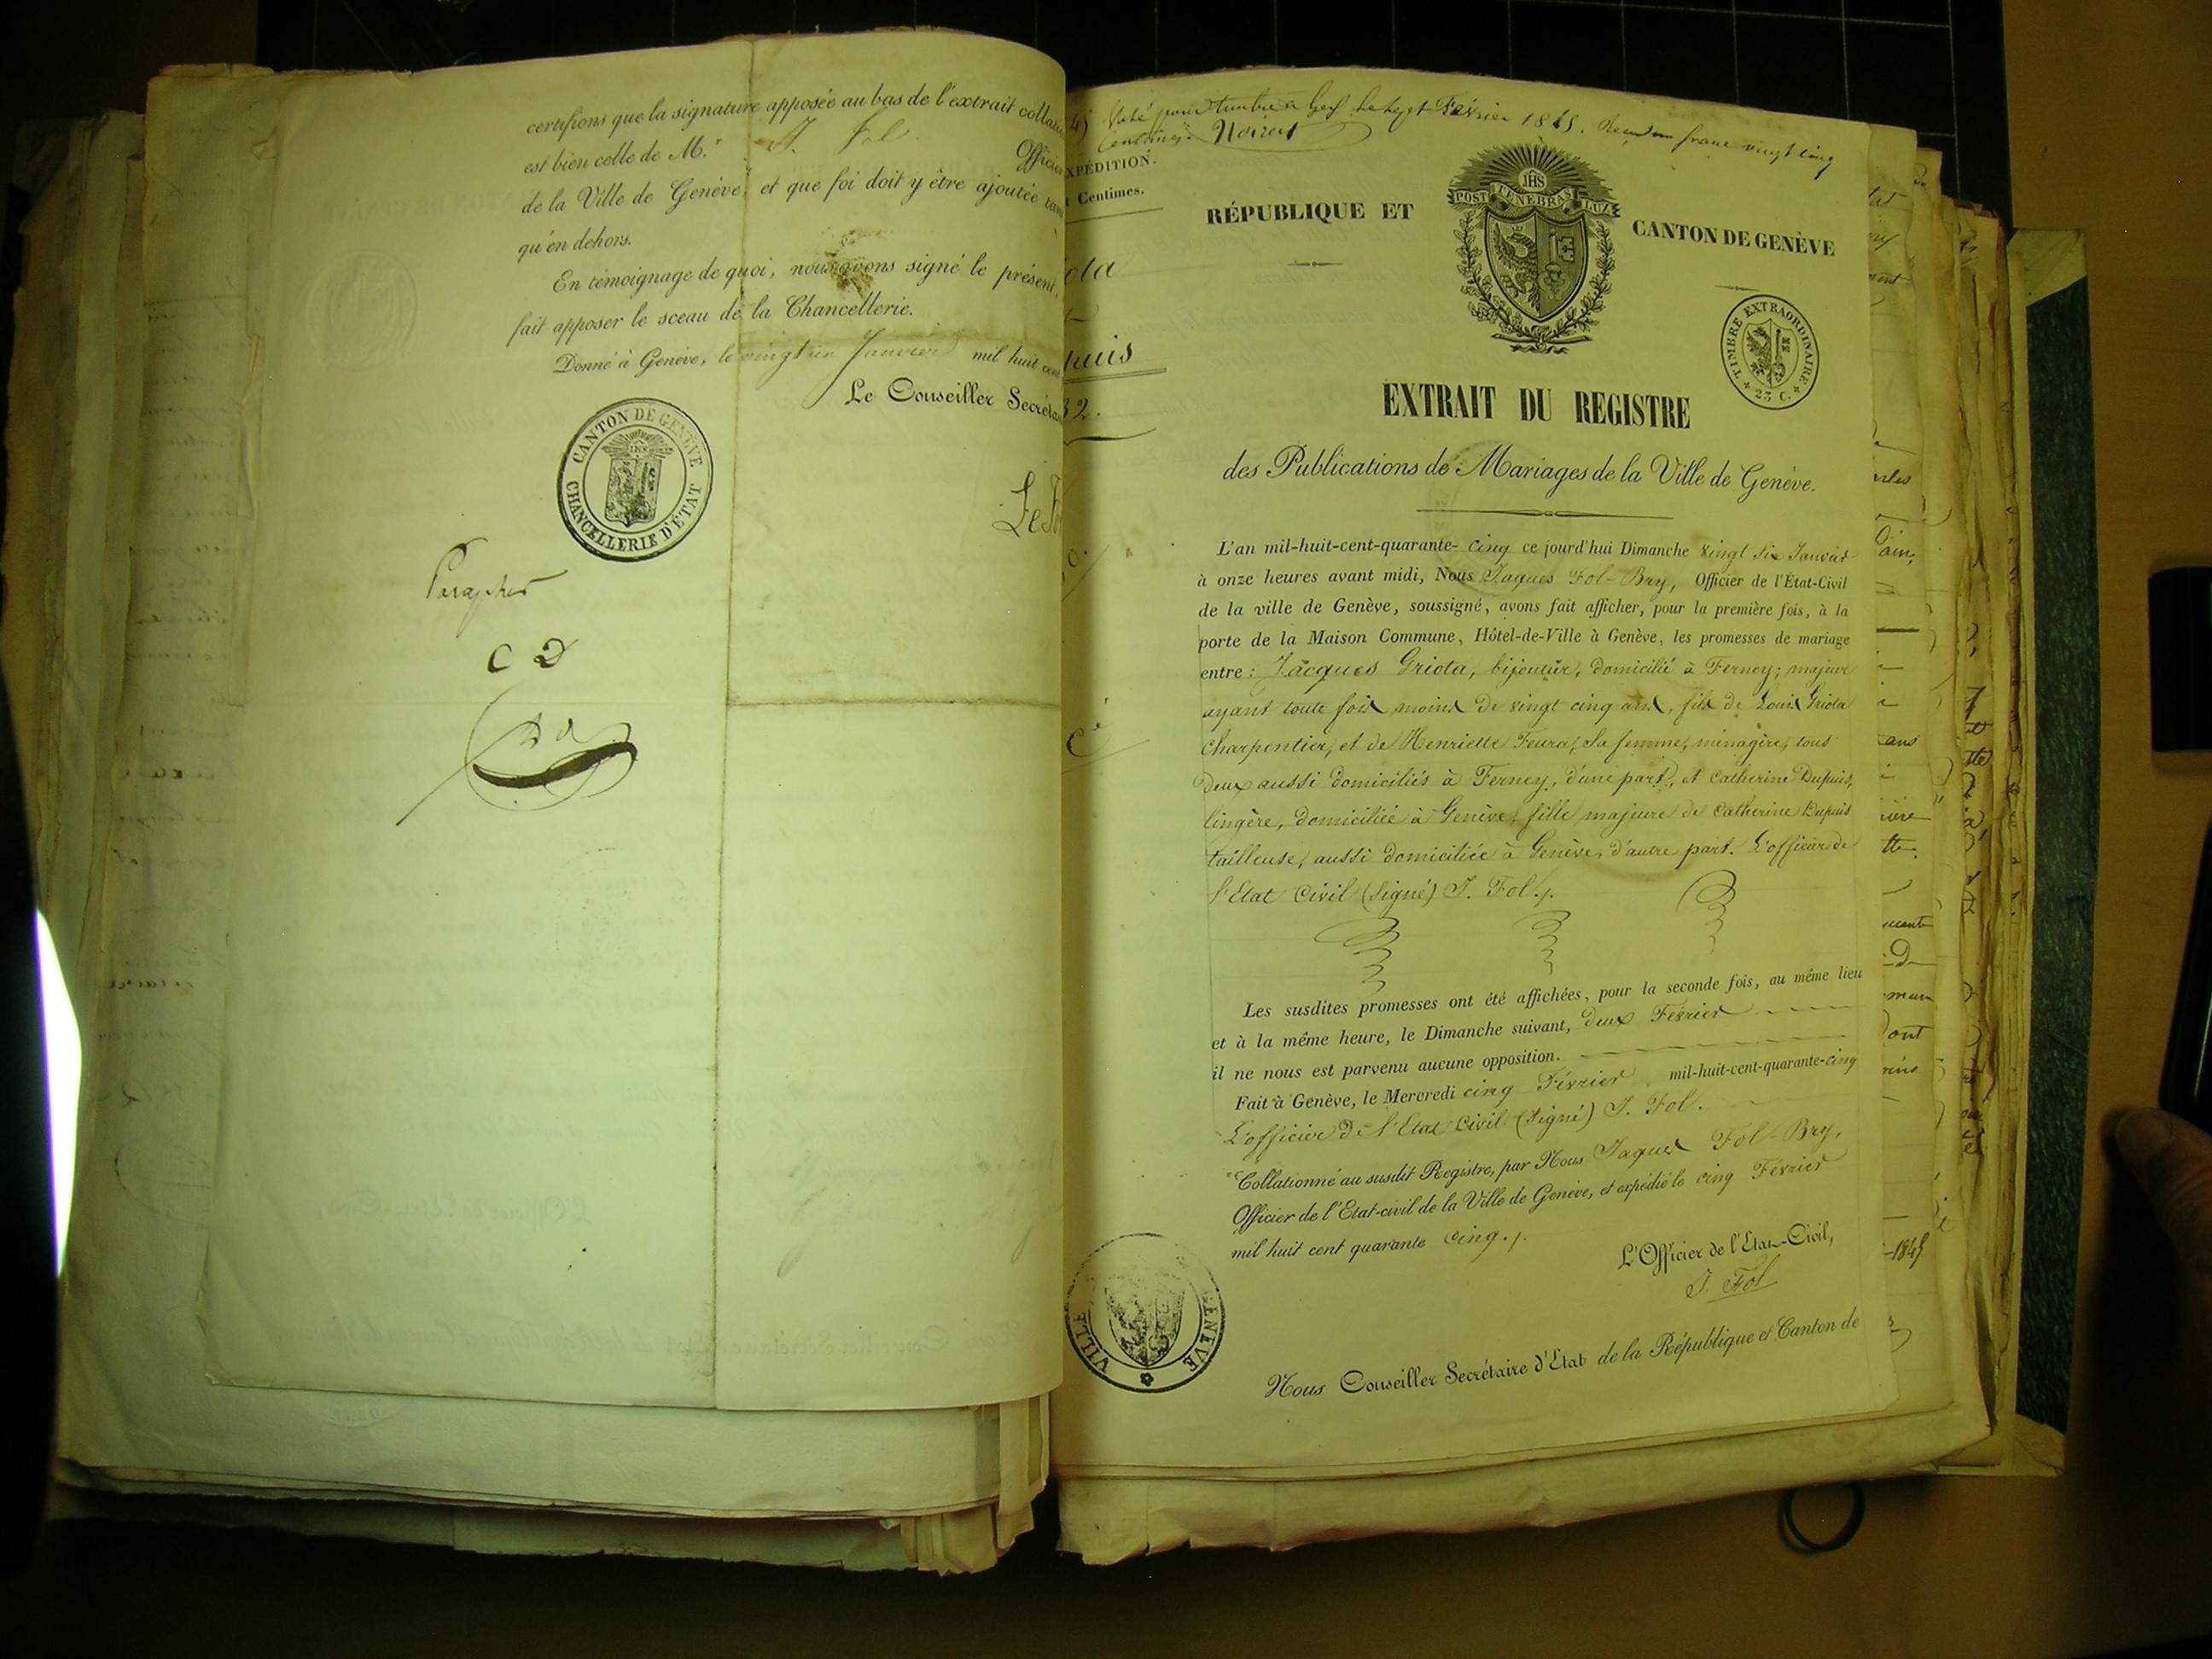 certifions que la signature apposée au bas de l'extrait
est bien celle de M.r J. Fol Officier
de la Ville de Genève, et que foi doit y être ajoutée
qu'en dehors.
En témoignage de quoi, nous avons signé le présent,
fait apposer le sceau de la Chancellerie.
Donné à Genève, le vingt un Janvier mil huit cent
Le Conseiller
CANTON DE GENÈVE
CHANCELLERIE D'ÉTAT
C D
pour timbre à Gex le sept Février 1845. franc vingt cinq
centimes. Noirot
XPÉDITION.
Centimes.
ota
puis
32.
IHS
POST TENEBRAS LUX
RÉPUBLIQUE ET CANTON DE GENÈVE
TIMBRE EXTRAORDINAIRE
25 C.
EXTRAIT DU REGISTRE
des Publications de Mariages de la Ville de Genève.
L'an mil-huit-cent-quarante-cinq ce jourd'hui Dimanche vingt six Janvier
à onze heures avant midi, Nous Jaques Fol-Bry, Officier de l'État-Civil
de la ville de Genève, soussigné, avons fait afficher, pour la première fois, à la
porte de la Maison Commune, Hôtel-de-Ville à Genève, les promesses de mariage
entre : Jacques Griota, bijoutier, domicilié à Ferney; majeur
ayant toute fois moins de vingt cinq ans, fils de Louis Griota
charpentier, et de Henriette sa femme, ménagère, tous
deux aussi domiciliés à Ferney, d'une part, et Catherine Dupuis,
lingère, domiciliée à Genève, fille majeure de Catherine Dupuis
tailleuse, aussi domiciliée à Genève, d'autre part. L'officier de
l'Etat Civil (signé) J. Fol./.
Les susdites promesses ont été affichées, pour la seconde fois, au même lieu
et à la même heure, le Dimanche suivant, deux Février
il ne nous est parvenu aucune opposition.
Fait à Genève, le Mercredi cinq Février mil-huit-cent-quarante-cinq
L'officier de l'Etat Civil (signé) J. Fol.
Collationné au susdit Registre, par Nous Jaques Fol-Bry,
Officier de l'Etat-civil de la Ville de Genève, et expédié le cinq Février
mil huit cent quarante cinq./.
L'Officier de l'Etat-Civil,
J. Fol
VILLE GENÈVE
Nous Conseiller Secrétaire d'Etat de la République et Canton de
1845